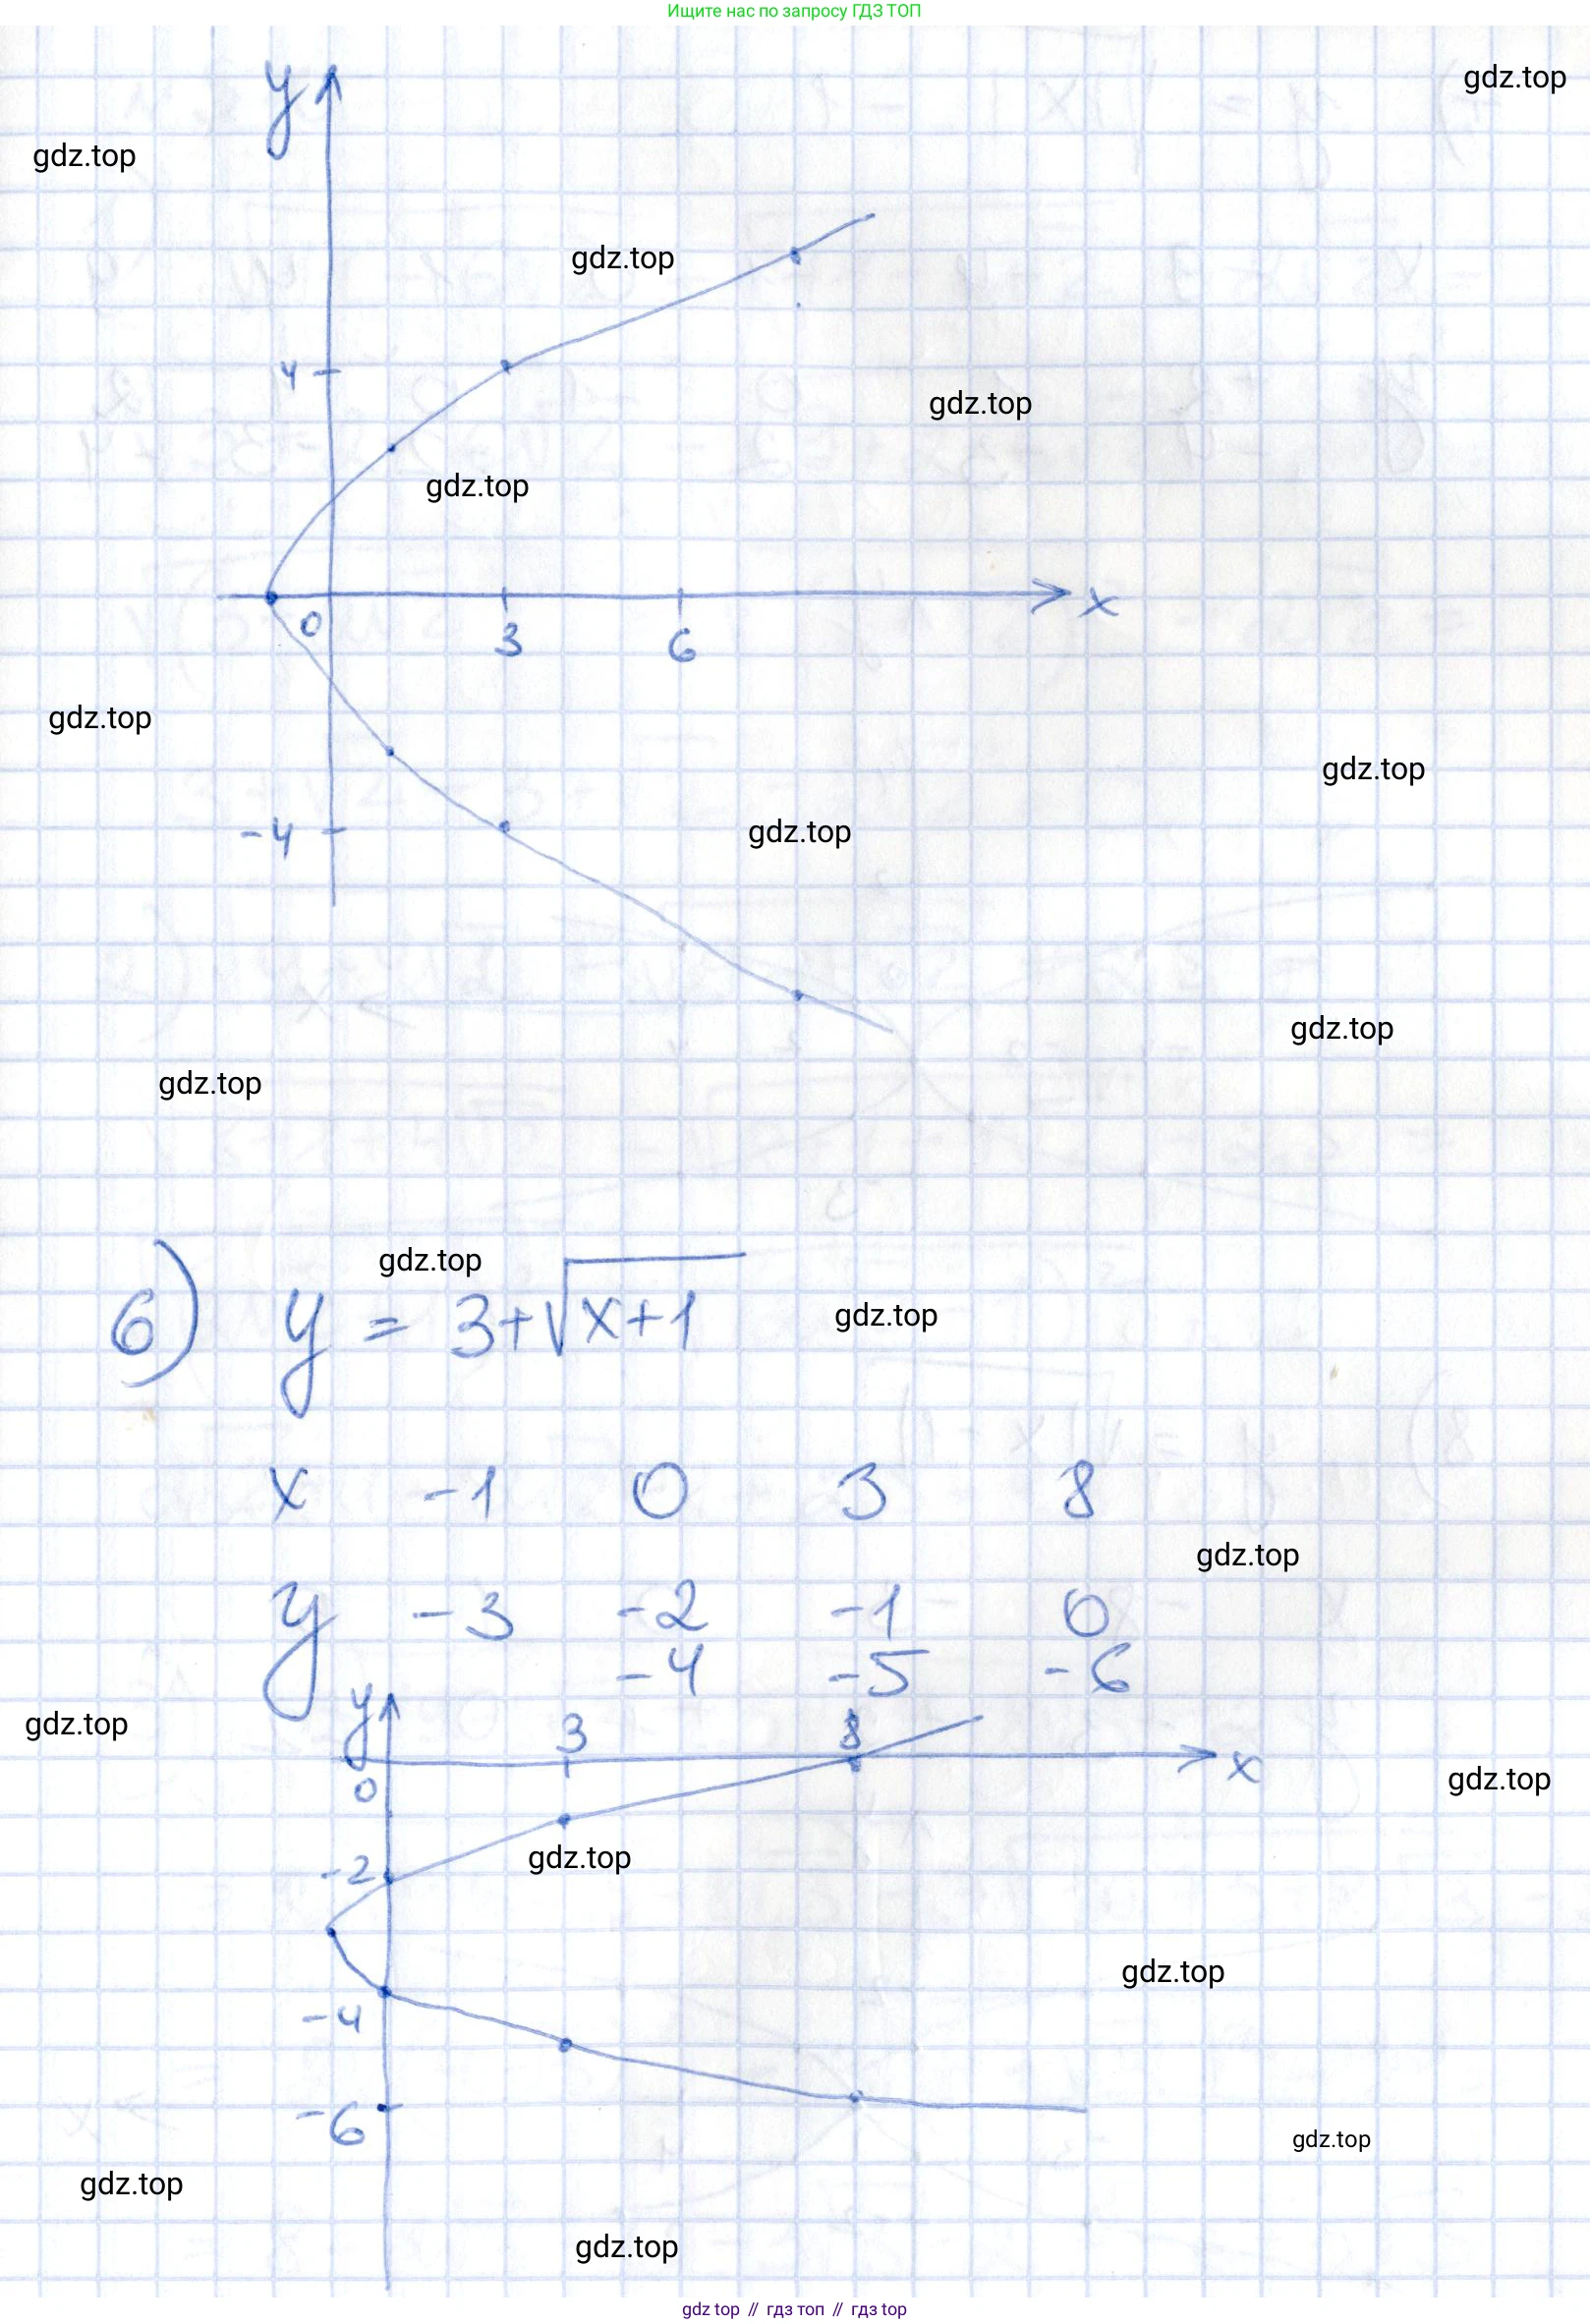 Ищите нас по запросу ГДЗ ТОП
gdz.top
y
gdz.top
gdz.top
4
gdz.top
gdz.top
0
3
6
x
gdz.top
gdz.top
-4
gdz.top
gdz.top
gdz.top
gdz.top
6) y = 3+√x+1
gdz.top
x -1 0 3 8
gdz.top
y -3 -2 -1 0
-4 -5 -6
y
gdz.top
3
8
0
x
gdz.top
-2
gdz.top
gdz.top
-4
-6
gdz.top
gdz.top
gdz.top
gdz top // гдз топ // гдз top